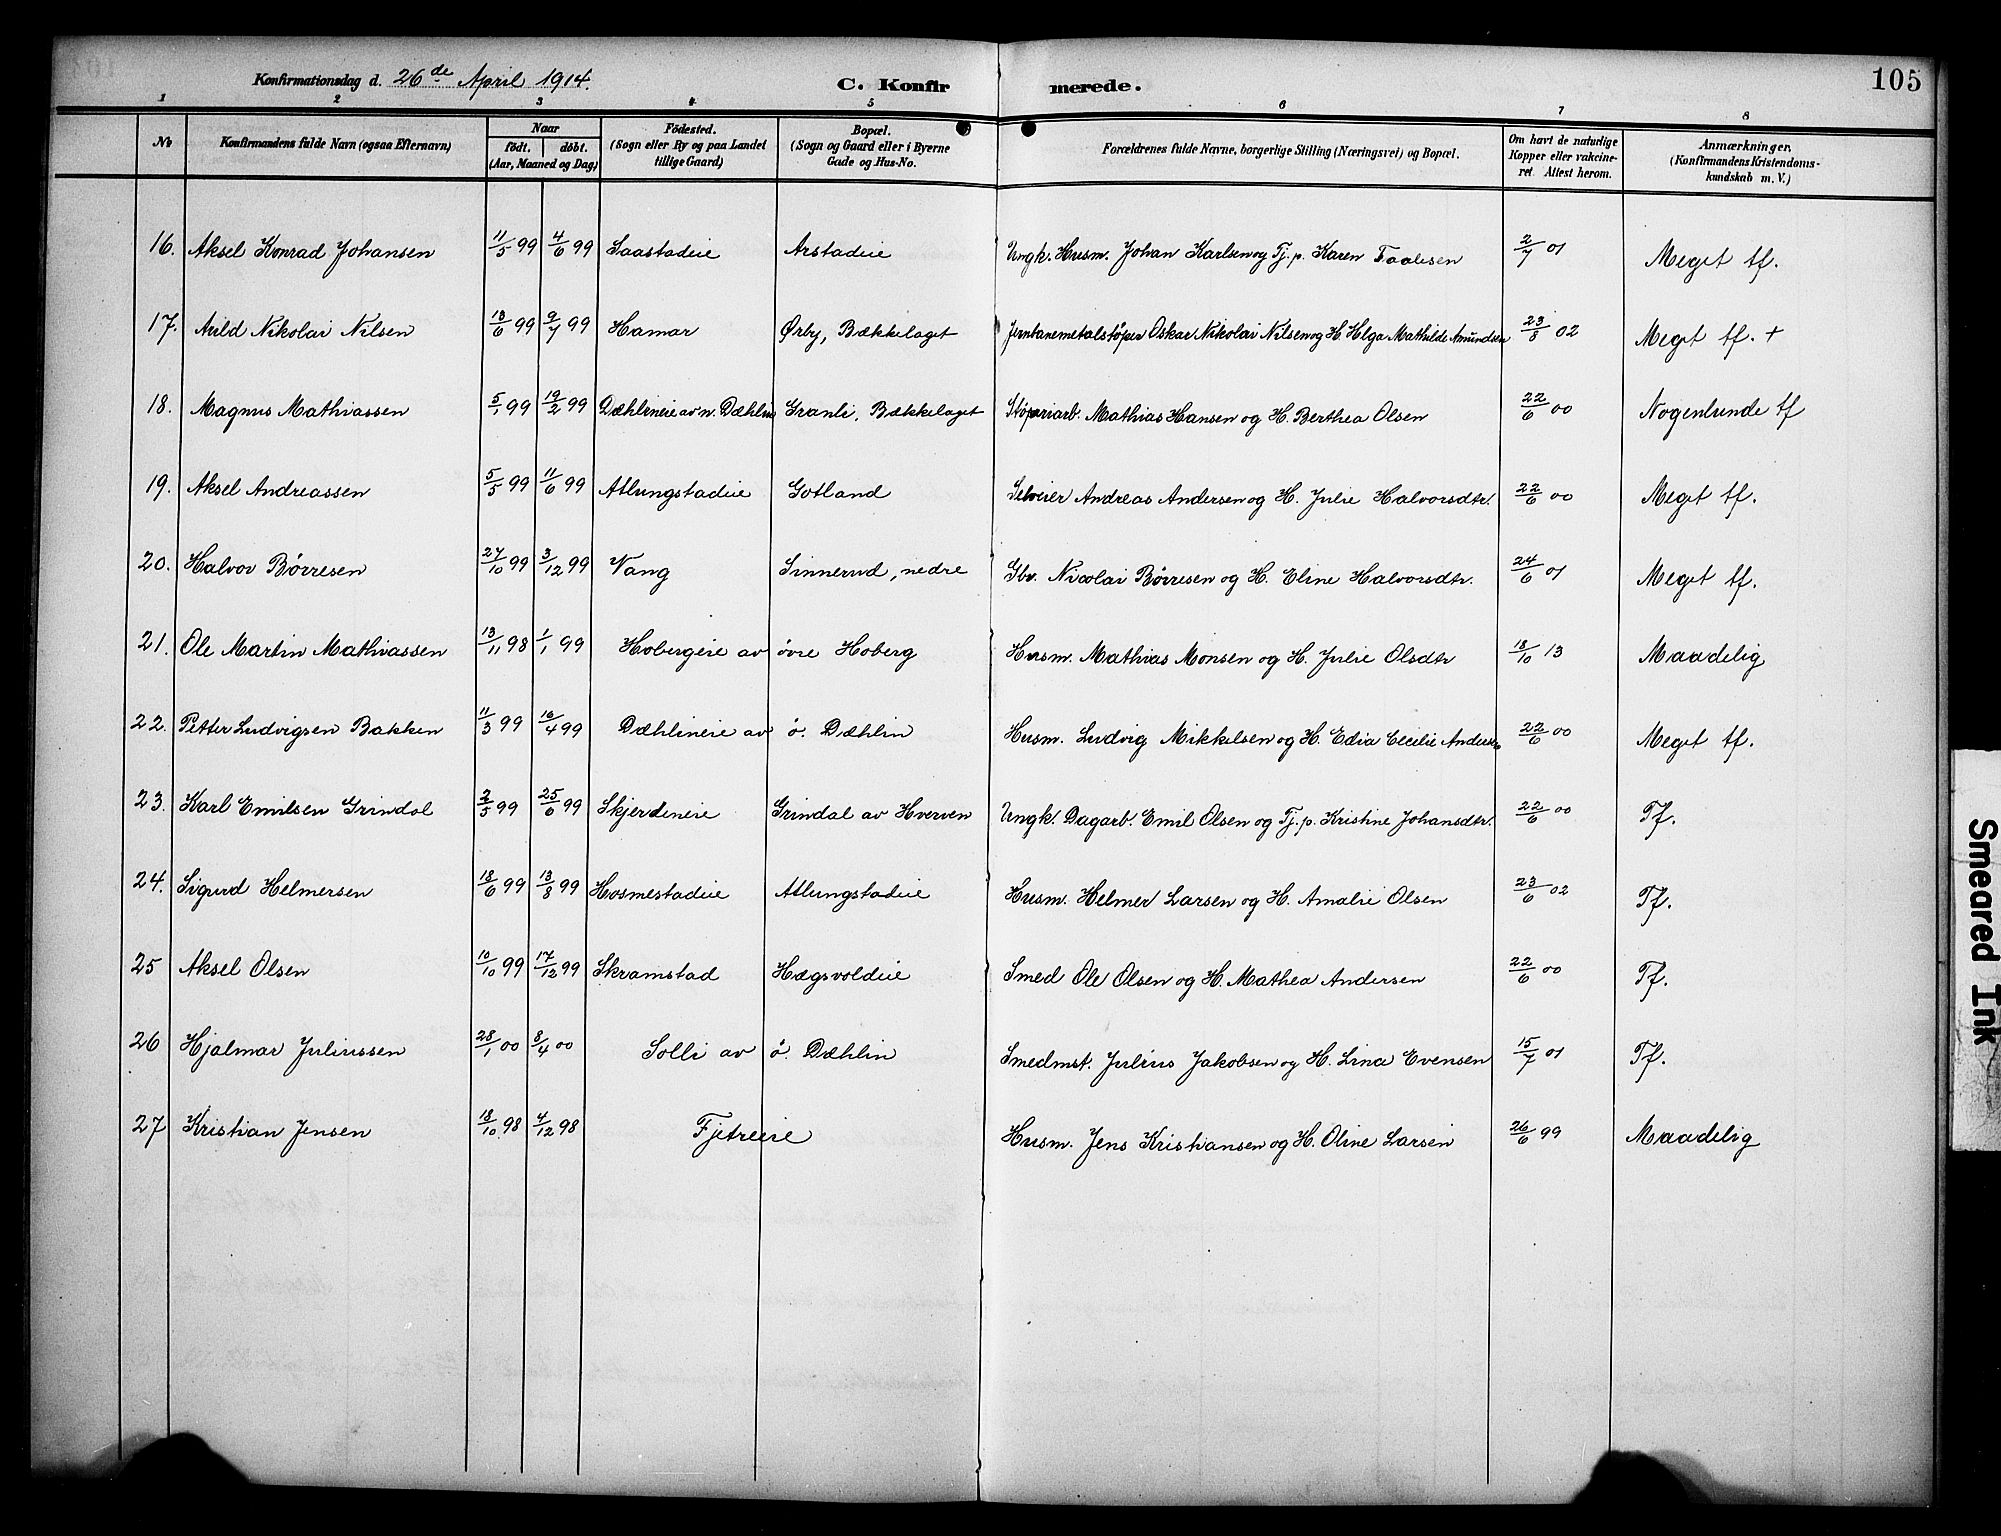 Konfirmationsdag d. 26de April 1914.
C. Konfirmerede.
105
1 2 3 4 5 6 7 8
No
Konfirmandens fulde Navn (ogsaa Efternavn)
Naar
födt. döbt.
(Aar, Maaned og Dag)
Födested.
(Sogn eller By og paa Landet
tillige Gaard)
Bopæl.
(Sogn og Gaard eller i Byerne
Gade og Hus-No.
Forældrenes fulde Navne, borgerlige Stilling (Næringsvei) og Bopæl.
Om havt de naturlige
Kopper eller vakcine-
ret. Attest herom.
Anmærkninger.
(Konfirmandens Kristendoms-
kundskab m. V.)
16. Aksel Konrad Johansen 11/5 99 4/6 99 Saastadeie Arstadeie Ungk. Husm. Johan Karlsen og Tj. p. Karen Taalesen 2/7 01 Meget tf.
17. Arild Nikolai Nilsen 13/6 99 9/7 99 Hamar Ørby, Bækkelaget Jernbanemetalstøper Oskar Nikolai Nilsen og H. Helga Mathilde Amundsen 23/8 02 Meget tf. +
18. Magnus Mathiassen 5/1 99 19/2 99 Dæhlineie av n. Dæhlin Granli, Bækkelaget Støperiarb. Mathias Hansen og H. Berthea Olsen 22/6 00 Nogenlunde tf
19. Aksel Andreassen 5/5 99 11/6 99 Atlungstadeie Gotland Selveier Andreas Andersen og H. Julie Halvorsdtr. 22/6 00 Meget tf.
20. Halvor Børresen 27/10 99 3/12 99 Vang Sinnerud, nedre Gbr. Nicolai Børresen og H. Eline Halvorsdtr. 24/6 01 Meget tf.
21. Ole Martin Mathiassen 13/11 98 1/1 99 Hobergeie av øvre Hoberg Husm. Mathias Monsen og H. Julie Olsdtr 18/10 13 Maadelig
22. Petter Ludvigsen Bakken 11/3 99 16/4 99 Dæhlineie av ø. Dæhlin Husm. Ludvig Mikkelsen og H. Edia Cecilie Andersen 22/6 00 Meget tf.
23. Karl Emilsen Grindal 2/5 99 25/6 99 Skjerdeneie Grindal av Hverven Ungk. Dagarb. Emil Olsen og Tj. p. Kristine Johansdtr. 22/6 00 Tf.
24. Sigurd Helmersen 18/6 99 13/8 99 Hosmestadeie Atlungstadeie Husm. Helmer Larsen og H. Amalie Olsen 23/6 02 Tf.
25 Aksel Olsen 10/10 99 17/12 99 Skramstad Hægsvoldeie Smed Ole Olsen og H. Mathea Andersen 22/6 00 Tf.
26 Hjalmar Juliussen 28/1 00 8/4 00 Solli av ø. Dæhlin Smedmst. Julius Jakobsen og H. Lina Evensen 15/7 01 Tf.
27 Kristian Jensen 18/10 98 4/12 98 Fjetreeie Husm. Jens Kristiansen og H. Oline Larsen 26/6 99 Maadelig
Smeared Ink